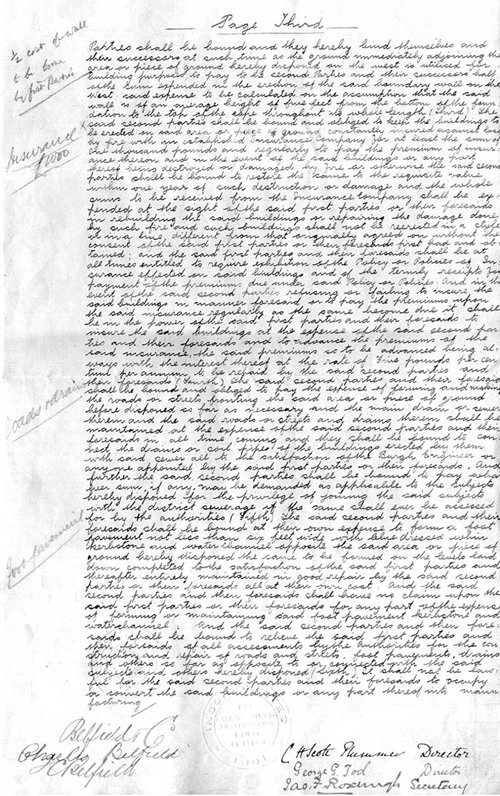 Page Third
½ cost of wall
to be borne
by first Parties
Parties shall be bound and they hereby bind themselves and
their successors at such time as the ground immediately adjoining the
area or piece of ground hereby disponed on the west is utilised for
building purposes to pay to the second Parties and their successors half
of the sum expended in the erection of the said boundary wall on the
West said expense to be calculated on the assumption that the said
wall is of an average height of five feet from the bottom of the foun
dation to the top of the cope throughout its whole length; (Third), The
said second parties shall be bound and obliged to keep the buildings to
be erected on said area or piece of ground constantly insured against loss
by fire with an established insurance company for at least the sum of
One thousand pounds and regularly to pay the premium of insur
ance thereon and in the event of the said buildings or any part
thereof being destroyed or damaged by fire or otherwise the said second
parties shall be bound to restore the same to the requisite value
within one year of such destruction or damage and the whole
sums to be received from the Insurance Company shall be ex
pended at the sight of the said first parties or their foresaids
in rebuilding the said buildings or repairing the damage done
by such fire and such buildings shall not be reerected in a style
or in a line different from that originally agreed on without the
consent of the said first parties or their foresaids first had and ob
tained; and the said first parties and their foresaids shall be at
all times entitled to require exhibition of the Policy or Policies of In
surance effected on said buildings and of the termly receipts for
payment of the premiums due under said Policy or Policies. And in the
event of the said second parties refusing or failing to insure the
said buildings in manner foresaid or to pay the premiums upon
the said insurance regularly as the same become due it shall
be in the power of the said first parties and their foresaids to
insure the said buildings at the expense of the said second par
ties and their foresaids and to advance the premiums of the
said insurance, the said premiums so to be advanced being al
ways with the interest thereof at the rate of Five pounds per cen
tum per annum to be repaid by the said second parties and
their foresaids; (Fourth), The said second parties and their foresaids
shall be bound and obliged to pay the expense of forming and making
the roads or streets fronting the said area or piece of ground
before disponed so far as necessary and the main drain or sewer
therein and the said roads or streets and drains therein shall be
maintained at the expense of the said second parties and their
foresaids in all time coming and they shall be bound to con
nect the drains or soil pipes of the buildings erected by them
with said sewer all to the satisfaction of the Burgh Engineer or
anyone appointed by the said first parties or their foresaids. And
further the said second parties shall be bound to pay what
ever sum, if any, may be demanded as applicable to the subjects
hereby disponed for the privilege of joining the said subjects
with the district sewerage if the same shall ever be assessed
for by the authorities; (Fifth), The said second parties and their
foresaids shall be bound at their own expense to form a foot
pavement not less than six feet wide with blue dressed whin
kerbstone and water channel opposite the said area or piece of
ground hereby disponed the same to be formed on the levels laid
down completed to the satisfaction of the said first parties and
thereafter entirely maintained in good repair by the said second
parties or their foresaids all at their own cost. And the said
second parties and their foresaids shall have no claim upon the
said first parties or their foresaids for any part of the expense
of forming or maintaining said foot pavement kerbstone and
waterchannel; And the said second parties and their fore
saids shall be bound to relieve the said first parties and
their foresaids of all assessments by the authorities for the con
struction and repair of roads and streets, foot pavements, drains
and others so far as opposite to or connected with the said
subjects and others hereby disponed; (Sixth), It shall not be law
ful for the said second parties and their foresaids to occupy
or convert the said buildings or any part thereof into manu
facturing
Insurance
£1000
roads & drains
Foot pavement
Belfields Co
Charles Belfield
Belfield
C H Scott Plummer Director
George G. Tod Director
Jas. F. Roxburgh Secretary